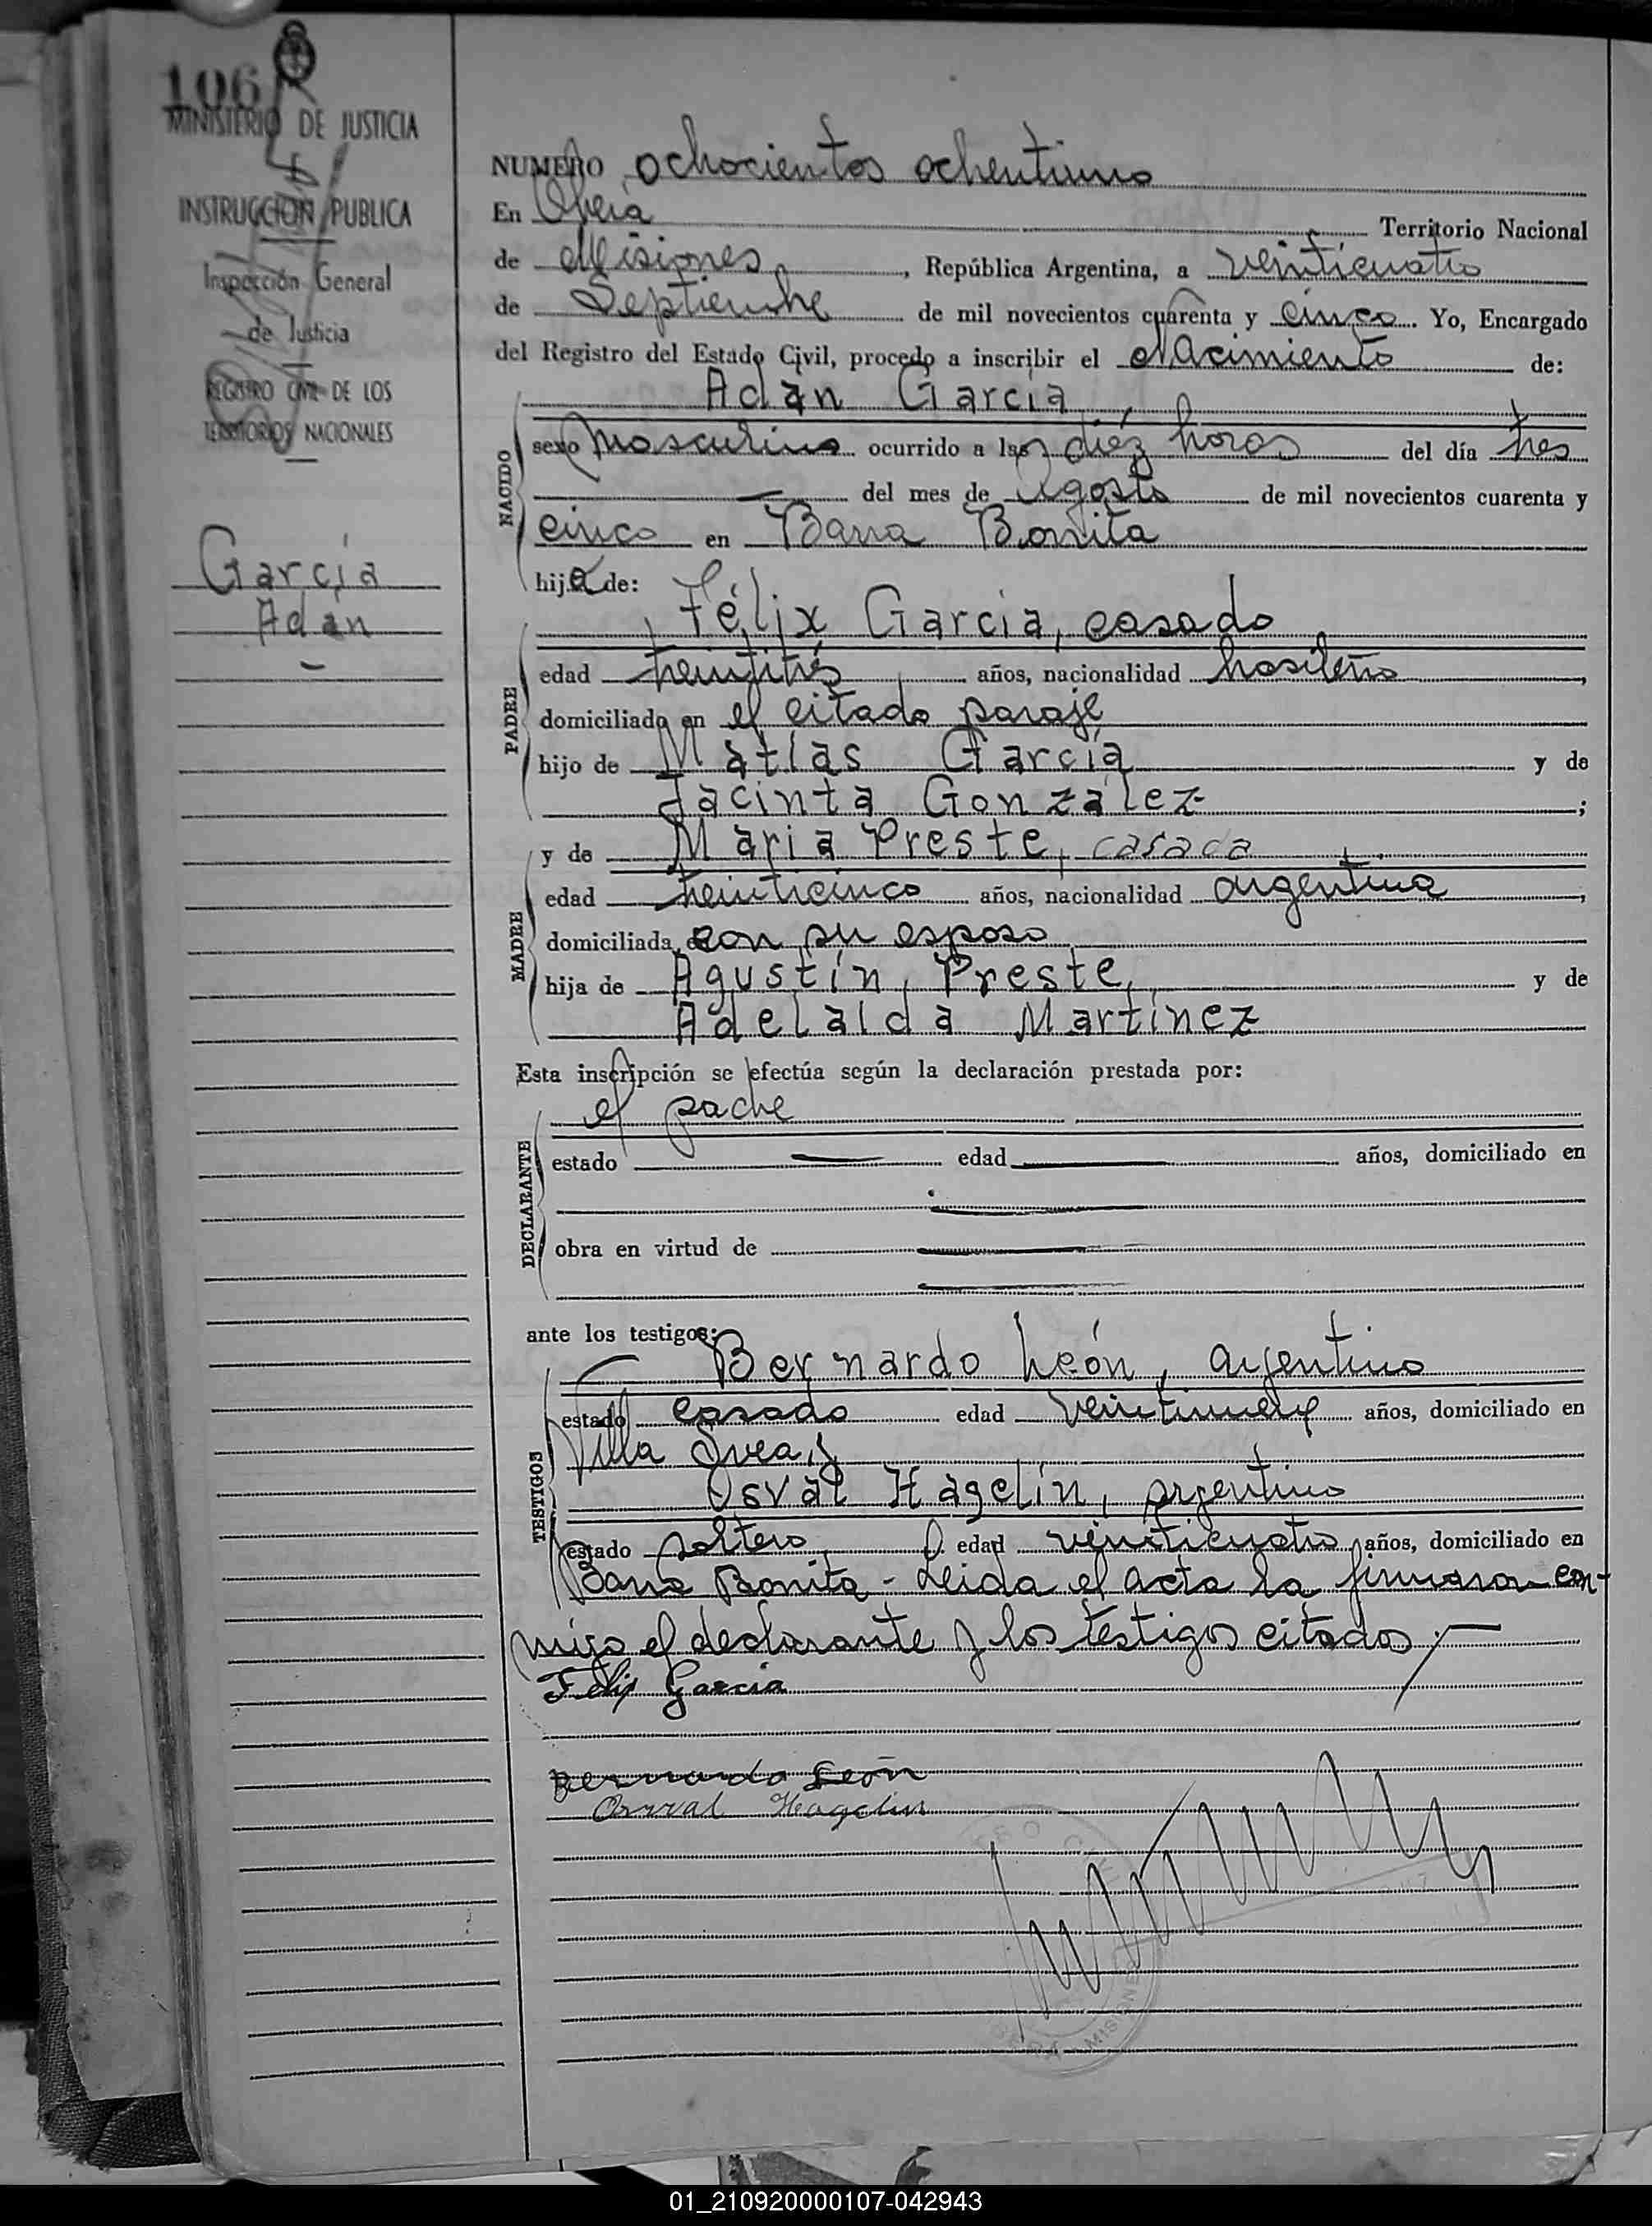 106
MINISTERIO DE JUSTICIA
INSTRUCCION PUBLICA
Inspección General
de Justicia
REGISTRO CIVIL DE LOS
TERRITORIOS NACIONALES
García
Adán
NUMERO ochocientos ochentiuno
En Oberá Territorio Nacional
de Misiones, República Argentina, a veinticuatro
de Septiembre de mil novecientos cuarenta y cinco. Yo, Encargado
del Registro del Estado Civil, procedo a inscribir el Nacimiento de:
Adán García
NACIDO
sexo masculino ocurrido a las diéz horas del día tres
del mes de Agosto de mil novecientos cuarenta y
cinco en Barra Bonita
hijo de:
Félix García, casado
PADRE
edad treintitrés años, nacionalidad brasileño,
domiciliado en el citado paraje
hijo de Matías García y de
Jacinta González;
y de María Preste, casada
MADRE
edad treinticinco años, nacionalidad argentina,
domiciliada con su esposo
hija de Agustín Preste, y de
Adelaida Martínez
Esta inscripción se efectúa según la declaración prestada por:
el padre
DECLARANTE
estado edad años, domiciliado en
obra en virtud de
ante los testigos:
Bernardo León, argentino
TESTIGOS
estado casado edad veintinueve años, domiciliado en
Villa Svea y
Osval Hagelín, argentino
estado soltero edad veinticuatro años, domiciliado en
Barra Bonita - Leida el acta la firmaron con-
migo el declarante y los testigos citados.-
Felix Garcia
Bernardo León
Osval Hagelin
MISIONES
01_210920000107-042943